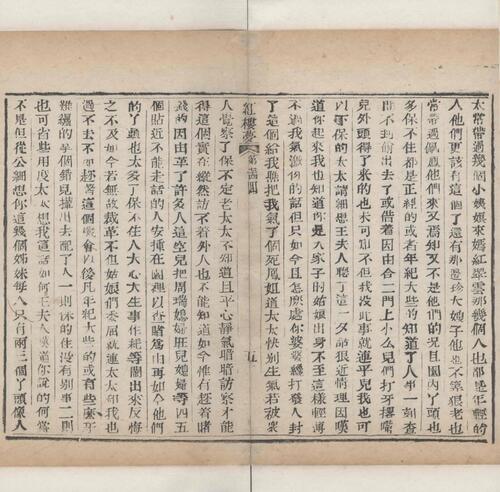 太常帶過幾個小姨娘來嫣紅翠雲那幾個人也都是年輕的
人他們更該有這個了還有那邊珍大嫂子他也不算狠老也
常帶過佩鳳他們來又焉知又不是他們的況且園內丫頭也
多保不住都是正經的或者年紀大些的知道了人事一刻查
問不到偷出去了或借着因由合二門上小么兒們打牙撂嘴
兒外頭得了來的也未可知不但我沒此事就連平兒我也可
以下保的太太請細想王夫人聽了這一夕話狠近情理因嘆
道你起來我也知道你是大家子的姑娘出身不至這樣輕薄
不過我氣激你的話但只如今且怎麼處你婆婆纔打發人封
了這個給我瞧把我氣了個死鳳姐道太太快別生氣若被衆
紅樓夢 第回 五
人覺察了保不定老太太不知道且平心靜氣暗暗訪察才能
得這個實在縱然訪不着外人也不能知道如今惟有趁着賭
錢的因由革了許多人這空兒把周瑞媳婦旺兒媳婦等四五
個貼近不能走話的人安揷在園裡以查賭為由再如今他們
的丫頭也太多了保不住人大心大生事作耗等鬧出來反悔
之不及如今若無故裁革不但姑娘們委屈就連太太和我也
過不去不如趁着這個機會以後凡年紀大些的或有些磨牙
難纏的拿個錯兒攆出去配了人一則保的住沒有別事二則
也可省些用度太太想我這話如何王夫人嘆道你說的何嘗
不是但從公細想你這幾個姊妹每人只有兩三個丫頭像人